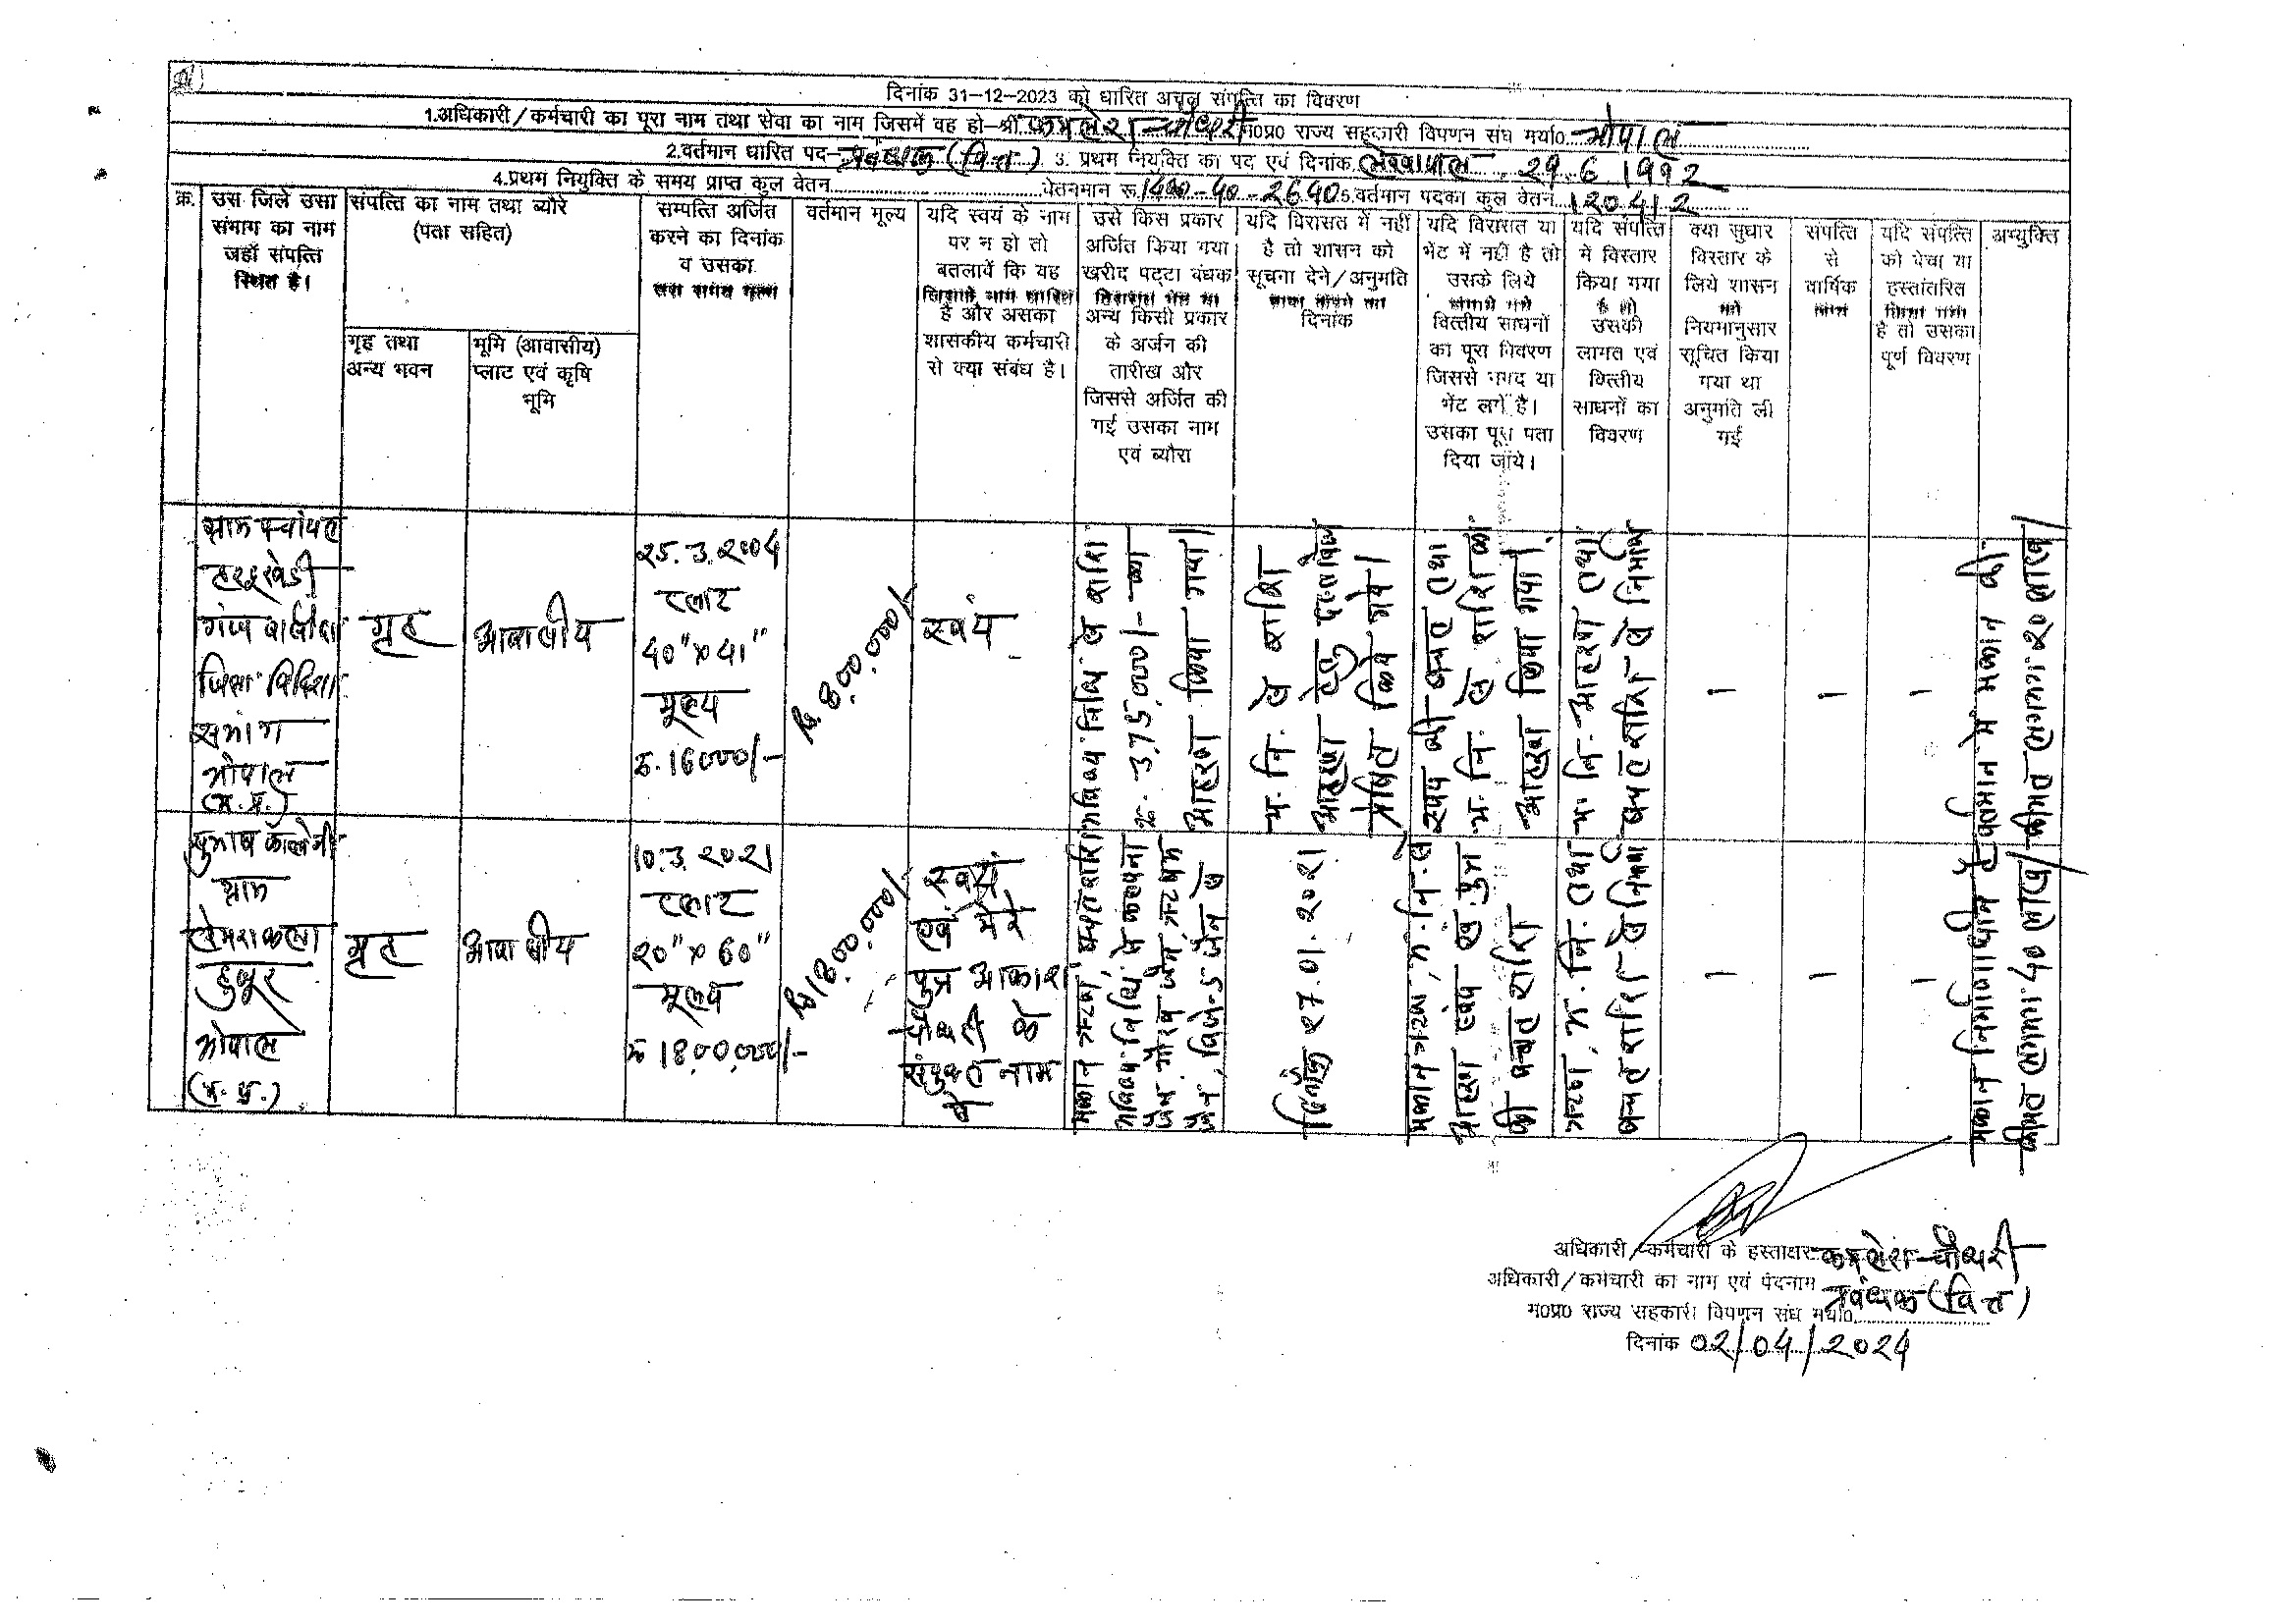 दिनांक 31-12-2023 को धारित अचल संपत्ति का विवरण
1.अधिकारी/कर्मचारी का पूरा नाम तथा सेवा का नाम जिसमें वह हो-श्री कमलेश चौधरी म0प्र0 राज्य सहकारी विपणन संघ मर्या0 भोपाल
2.वर्तमान धारित पद- प्रबंधक (वित्त) 3. प्रथम नियुक्ति का पद एवं दिनांक लेखापाल 29.6.1992
4.प्रथम नियुक्ति के समय प्राप्त कुल वेतन वेतनमान रू. 1400-40-2640 5.वर्तमान पदका कुल वेतन 120412
क्र.
उस जिले उसा
संभाग का नाम
जहॉ संपत्ति
स्थित है।
संपत्ति का नाम तथा ब्यौरे
(पता सहित)
गृह तथा
अन्य भवन
भूमि (आवासीय)
प्लाट एवं कृषि
भूमि
सम्पत्ति अर्जित
करने का दिनांक
व उसका
उस समय मूल्य
वर्तमान मूल्य
यदि स्वयं के नाम
पर न हो तो
बतलायें कि वह
जिसके नाम धारित
है और असका
शासकीय कर्मचारी
से क्या संबंध है।
उसे किस प्रकार
अर्जित किया गया
खरीद पट्टा बंधक
विरासत भेंट या
अन्य किसी प्रकार
के अर्जन की
तारीख और
जिससे अर्जित की
गई उसका नाम
एवं ब्यौरा
यदि विरासत में नहीं
है तो शासन को
सूचना देने/अनुमति
प्राप्त करने का
दिनांक
यदि विरासत या
भेंट में नहीं है तो
उसके लिये
लगाये गये
वित्तीय साधनों
का पूरा विवरण
जिससे नगद या
भेंट लगें है।
उसका पूरा पता
दिया जाये।
यदि संपत्ति
में विस्तार
किया गया
है तो
उसकी
लागत एवं
वित्तीय
साधनों का
विवरण
क्या सुधार
विस्तार के
लिये शासन
को
नियमानुसार
सूचित किया
गया था
अनुमति ली
गई
संपत्ति
से
वार्षिक
आय
यदि संपत्ति
को बेचा या
हस्तांतरित
किया गया
है तो उसका
पूर्ण विवरण
अभ्युक्ति
गंज बासौदा
जिला विदिशा
संभाग
भोपाल
(म.प्र.)
गृह
आवासीय
25.3.2004
प्लाट
40"x41"
मूल्य
रु.16000/-
Rs. 8,00,000/-
स्वंय
भविष्य निधि से राशि
रू. 3,75,000/- का
आहरण किया गया।
भ.नि. से राशि
आहरण हेतु
प्रेषित किये गये।
स्वयं की बचत तथा
भ. नि. से राशि का
आहरण किया गया।
भ. नि. आहरण तथा
बचत राशि से निर्माण
-
-
-
वर्तमान में मकान की
कीमत लगभग 20 लाख
सुभाष कॉलोनी
ग्राम
सेमराकला
हुजूर
भोपाल
(म.प्र.)
गृह
आवासीय
10.3.2021
प्लाट
20"x60"
मूल्य
रु 18,00,000/-
Rs 18,00,000/-
स्वयं
एवं मेरे
पुत्र आकाश
चौधरी के
संयुक्त नाम
से
मकान ऋण, बचत राशि
दिनाँक 27.01.2021
मकान ऋण, भ.नि. से
आहरण स्वंय एवं पुत्र
की बचत राशि
ऋण, भ.नि. तथा
बचत राशि से निर्माण
-
-
-
मकान निर्माणाधीन है
कीमत लगभग 40 लाख
अधिकारी/कर्मचारी के हस्ताक्षर
अधिकारी/कर्मचारी का नाम एवं पदनाम कमलेश चौधरी
प्रबंधक (वित्त)
म0प्र0 राज्य सहकारी विपणन संघ मर्या0
दिनांक 02/04/2024